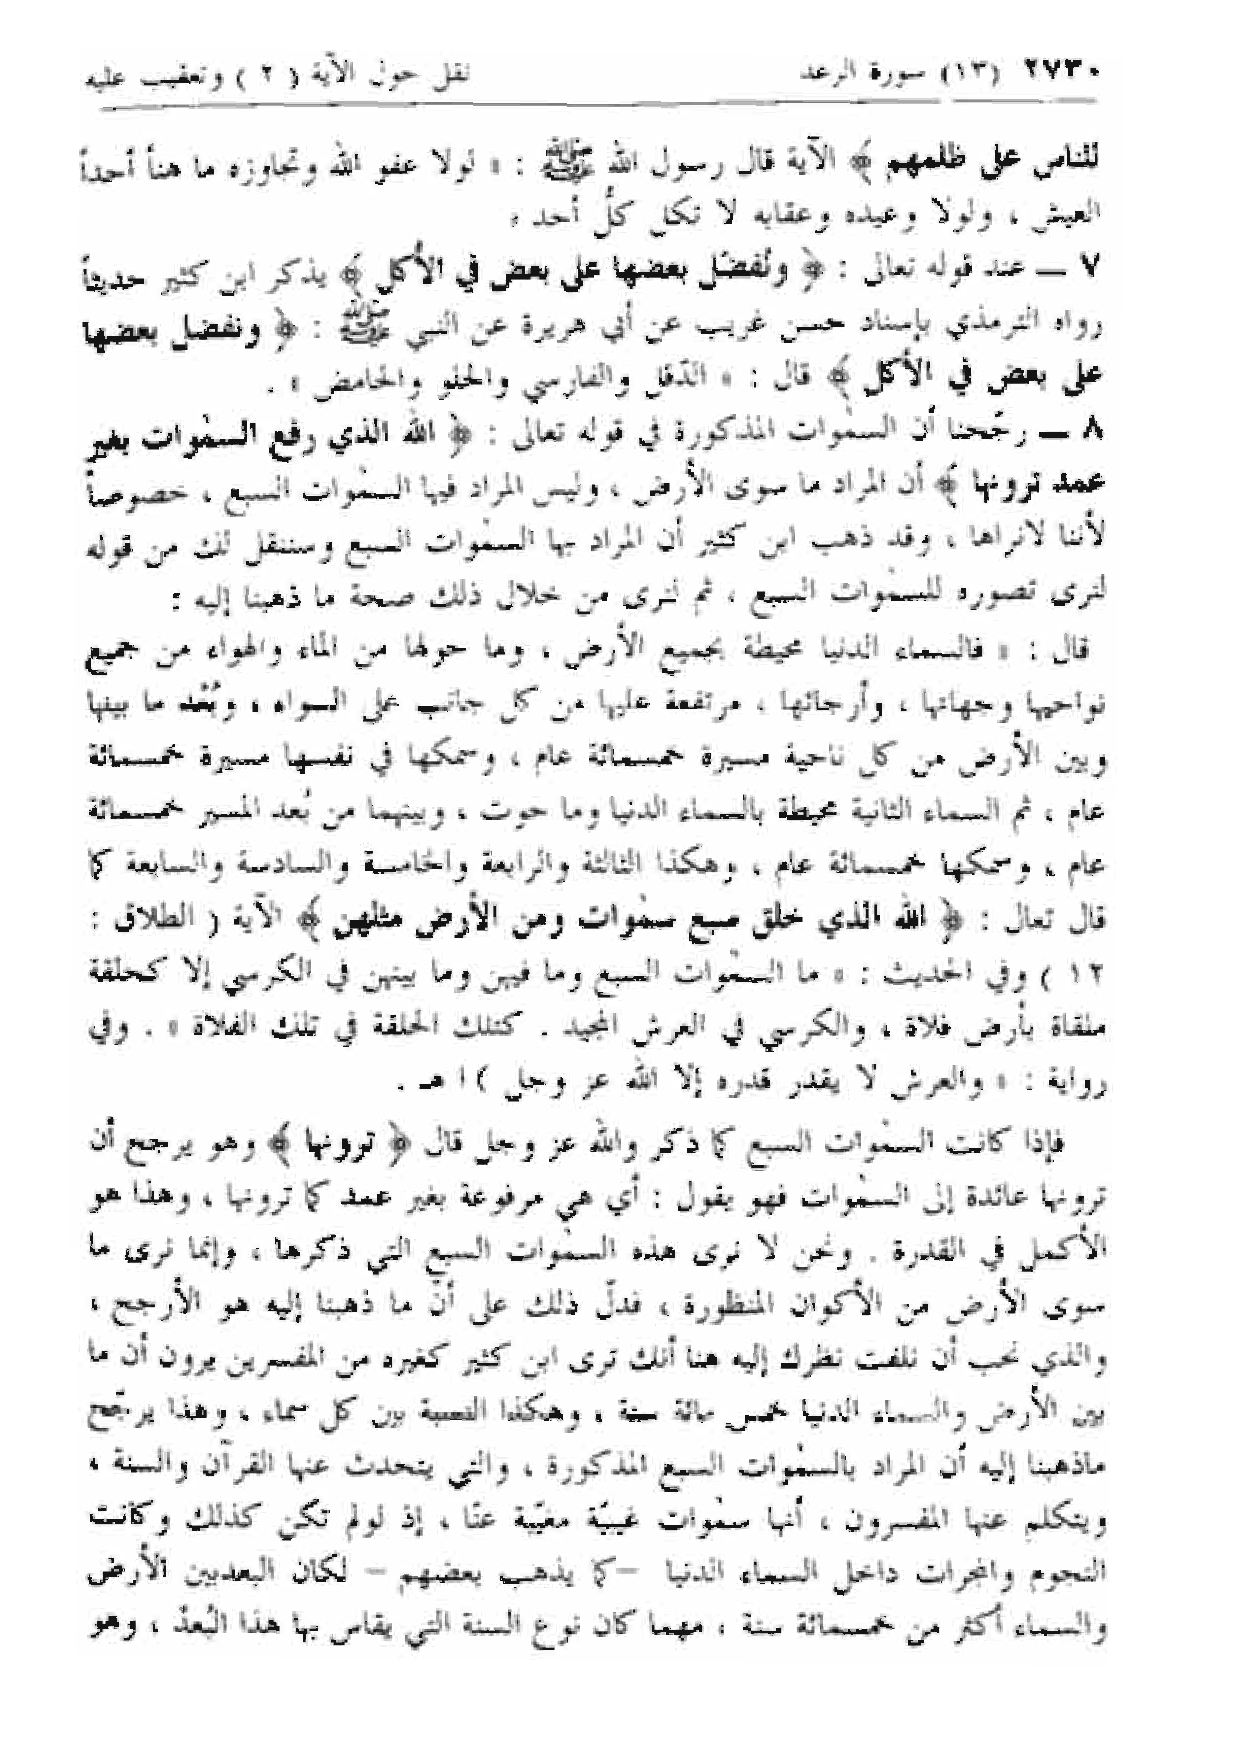 ٢٧٣٠ (١٣) سورة الرعد نقل حول الآية ( ٢ ) وتعقيب عليه
للناس على ظلمهم ﴾ الآية قال رسول الله ﷺ : « لولا عفو الله وتجاوزه ما هنأ أحداً
العيش ، ولولا وعيده وعقابه لا تكل كلُّ أحد »
٧ ــ عند قوله تعالى : ﴿ ونُفضّل بعضها على بعض في الأكل ﴾ يذكر ابن كثير حديثاً
رواه الترمذي بإسناد حسن غريب عن أبي هريرة عن النبي ﷺ : ﴿ ونفضل بعضها
على بعض في الأكل ﴾ قال : « الدّقل والفارسي والحلو والحامض » .
٨ ــ رجّحنا أن السمٰوات المذكورة في قوله تعالى : ﴿ الله الذي رفع السمٰوات بغير
عمد ترونها ﴾ أن المراد ما سوى الأرض ، وليس المراد فيها السمٰوات السبع ، خصوصاً
لأننا لانراها ، وقد ذهب ابن كثير أن المراد بها السمٰوات السبع وسننقل لك من قوله
لنرى تصوره للسمٰوات السبع ، ثم لنرى من خلال ذلك صحة ما ذهبنا إليه :
قال : « فالسماء الدنيا محيطة بجميع الأرض ، وما حولها من الماء والهواء من جميع
نواحيها وجهاتها ، وأرجائها ، مرتفعة عليها من كل جانب على السواء ، وبُعْد ما بينها
وبين الأرض من كل ناحية مسيرة خمسمائة عام ، وسمكها في نفسها مسيرة خمسمائة
عام ، ثم السماء الثانية محيطة بالسماء الدنيا وما حوت ، وبينهما من بُعد المسير خمسمائة
عام ، وسمكها خمسمائة عام ، وهكذا الثالثة والرابعة والخامسة والسادسة والسابعة كما
قال تعالى : ﴿ الله الذي خلق سبع سمٰوات ومن الأرض مثلهن ﴾ الآية ( الطلاق :
١٢ ) وفي الحديث : « ما السمٰوات السبع وما فيهن وما بينهن في الكرسي إلا كحلقة
ملقاة بأرض فلاة ، والكرسي في العرش المجيد . كتلك الحلقة في تلك الفلاة » . وفي
رواية : « والعرش لا يقدر قدره إلا الله عز وجل ) ا هـ .
فإذا كانت السمٰوات السبع كما ذكر والله عز وجل قال ﴿ ترونها ﴾ وهو يرجح أن
ترونها عائدة إلى السمٰوات فهو يقول : أي هي مرفوعة بغير عمد كما ترونها ، وهذا هو
الأكمل في القدرة . ونحن لا نرى هذه السمٰوات السبع التي ذكرها ، وإنما نرى ما
سوى الأرض من الأكوان المنظورة ، فدلّ ذلك على أنّ ما ذهبنا إليه هو الأرجح ،
والذي نحب أن نلفت نظرك إليه هنا أنك ترى ابن كثير كغيره من المفسرين يرون أن ما
بين الأرض والسماء الدنيا خمس مائة سنة ، وهكذا النسبة بين كل سماء ، وهذا يرجّح
ماذهبنا إليه أن المراد بالسمٰوات السبع المذكورة ، والتي يتحدث عنها القرآن والسنة ،
ويتكلم عنها المفسرون ، أنها سمٰوات غيبيّة مغيّبة عنّا ، إذ لولم تكن كذلك وكانت
النجوم والمجرات داخل السماء الدنيا – كما يذهب بعضهم – لكان البعدبين الأرض
والسماء أكثر من خمسمائة سنة ، مهما كان نوع السنة التي يقاس بها هذا البُعدُ ، وهو